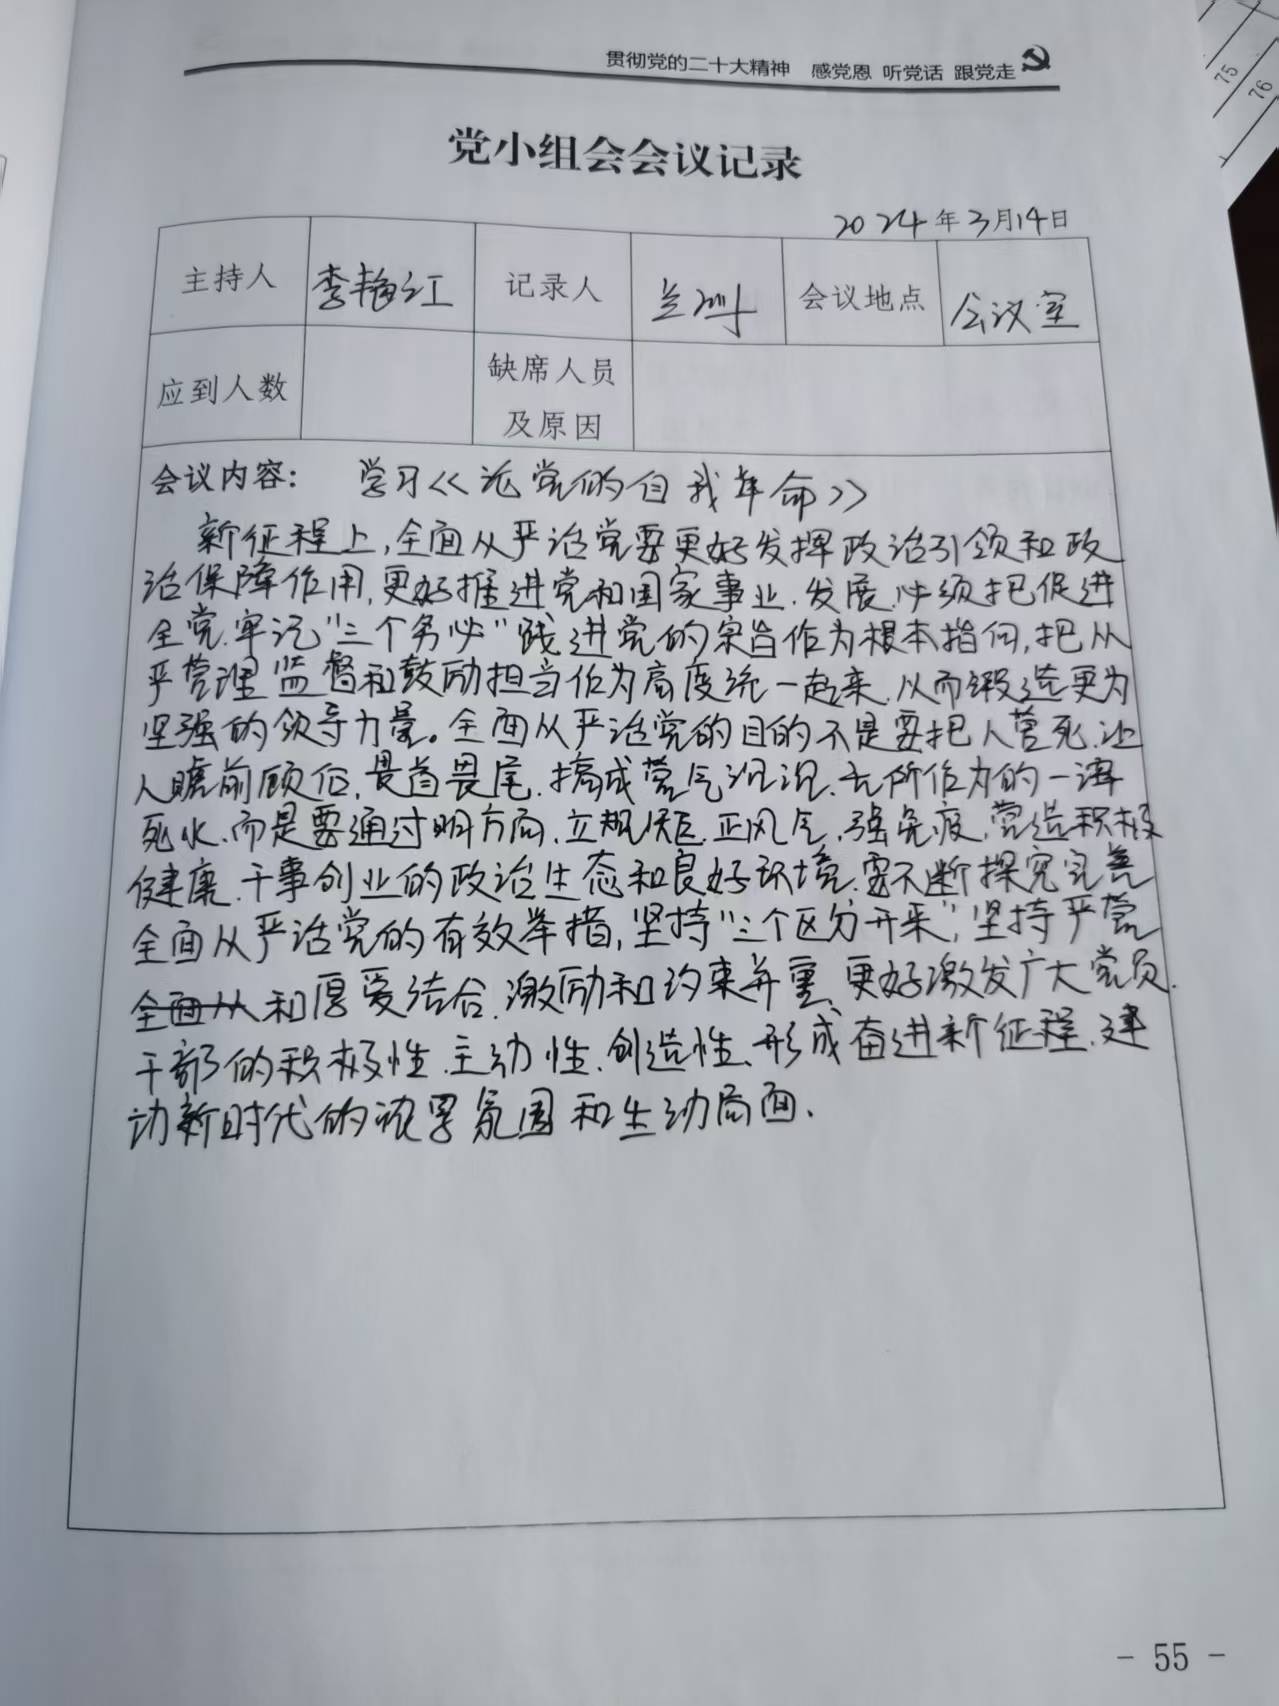 贯彻党的二十大精神 感党恩 听党话 跟党走
75
76
党小组会会议记录
2024年3月14日
主持人 李艳红 记录人 兰训 会议地点 会议室
应到人数 缺席人员及原因
会议内容： 学习《论党的自我革命》
新征程上,全面从严治党要更好发挥政治引领和政
治保障作用,更好推进党和国家事业.发展.必须把促进
全党.牢记"三个务必"践进党的宗旨作为根本指向,把从
严管理监督和鼓励担当作为高度统一起来.从而锻造更为
坚强的领导力量。全面从严治党的目的不是要把人管死.让
人瞻前顾后,畏首畏尾.搞成暮气沉沉.无所作为的一潭
死水.而是要通过明方向.立规矩.正风气.强免疫.营造积极
健康.干事创业的政治生态和良好环境.要不断探究完善
全面从严治党的有效举措,坚持"三个区分开来",坚持严管
全面从和厚爱结合.激励和约束并重、更好激发广大党员.
干部的积极性.主动性.创造性、形成奋进新征程.建
功新时代的浓厚氛围和生动局面.
- 55 -